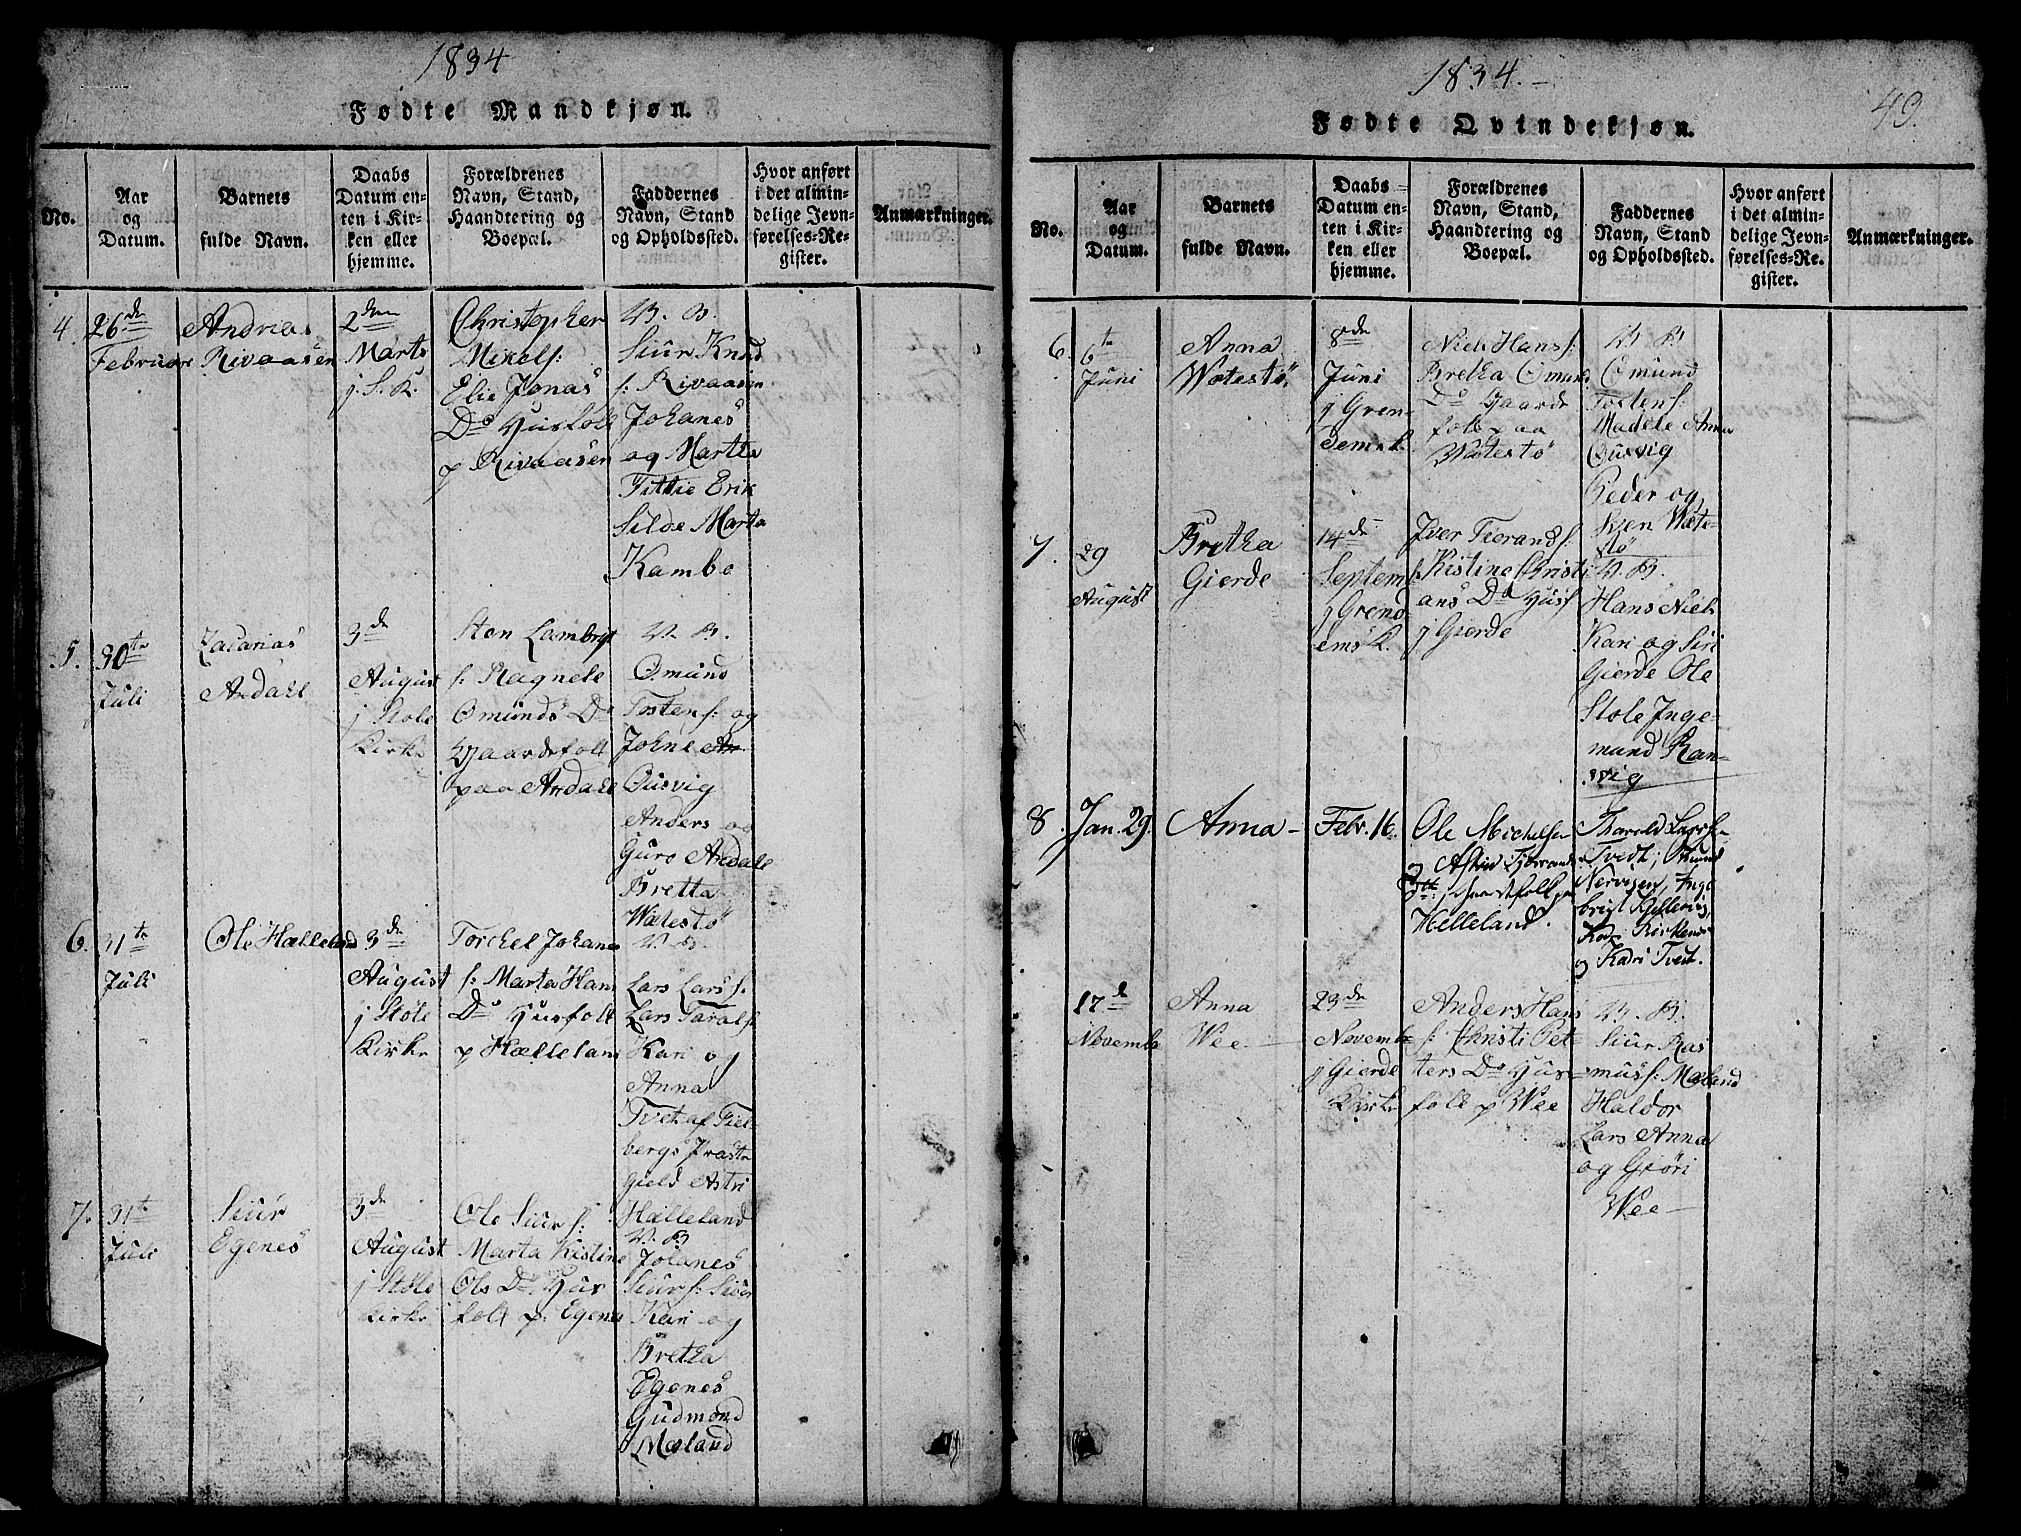 1834
Fødte Mandkjøn.
No.
Aar
og
Datum.
Barnets
fulde Navn.
Daabs
Datum en-
ten i Kir-
ken eller
hjemme.
Forældrenes
Navn, Stand,
Haandtering og
Boepæl.
Faddernes
Navn, Stand
og Opholdssted.
Hvor anført
i det almin-
delige Jevn-
førelses-Re-
gister.
Anmærkninger.
4.
26de
Februar
Andrias
Rivaasen
2den
Marts
j S. K.
Christopher
Mikels:
Elie Jonas
Dr Husfolk
p Rivaasen
V. B.
Siur Knud
s: Rivaasen
Johanes
og Martha
Tittie Erik
Silde Marta
Kambo
5.
30te
Juli
Zacarias
Ardahl
3de
August
j Stole
Kirke
Sten Lambrigt
s: Ragnele
Omunds Dr
Gaardsfolk
paa Ardahl
V. B.
Omund
Tostens: og
Johne
Ousvig
Anders og
Guro Ardale
Bretta
Wætestö
6.
31te
Juli
Ole Hælleland
3de
August
j Stole
Kirke
Torchel Johanes
s: Marta Hans
Dr Husfolk
p Hælleland
V. B.
Lars Lars s:
Lars Tarals:
Kari og
Anna
Tvet af Fiel-
bergs Præste
Gield Astri
Hælleland
7.
31te
Juli
Siur
Egenes
3de
August
j Stole
Kirke
Ole Siur s:
Marta Kistine
Ols Dr. Hus
folk p. Egenes
V. B
Johanes
Siur s: Siur
Kari og
Bretha
Egenes
Gudmond
Mæland
1834.-
49.
Fødte Qvindekjøn.
No.
Aar
og
Datum.
Barnets
fulde Navn.
Daabs-
Datum en-
ten i Kir-
ken eller
hjemme.
Forældrenes
Navn, Stand,
Haandtering og
Boepæl.
Faddernes
Navn, Stand
og Opholdssted.
Hvor anført
i det almin-
delige Jevn-
førelses-Re-
gister.
Anmærkninger.
6.
6te
Juni
Anna
Wætestö
8de
Juni
j Gren-
demsk.
Niels Hans s:
Bretha Omund
Dr Gaards
folk paa
Wætestö
V. B
Omund
Tostens:
Madele Anna
Ousvig
Peder og
Sven Wæte-
stö
7.
29
August
Bretha
Gierde
14de
Septemb
j Grend
emsk.
Iver Tierands:
Kistine Christi
ans Dr Husf
j Gierde
V. B.
Hans Niels
Kari og Siri
Gierde Ole
Stole Inge-
mund Ran-
vig
8.
Jan. 29.
Anna -
Febr. 16.
Ole Michelsen
og Astrid Tjerrands
Dtt: Gaardfolk paa
Helleland.
Tharald Larsen
Tvedt,
Nervigen, Inge
brigt Kjellevig,
og Kadri Tvedt.
17d
Novembe
Anna
Wee -
23de
Novembr
j Gierde
Kirke
Anders Hans
s: Christi Pet-
ters Dr Hus-
folk p Wee
V. B.
Siur Ras
mus s: Mæland
Haldor
Lars Anna
og Giöri
Wee -